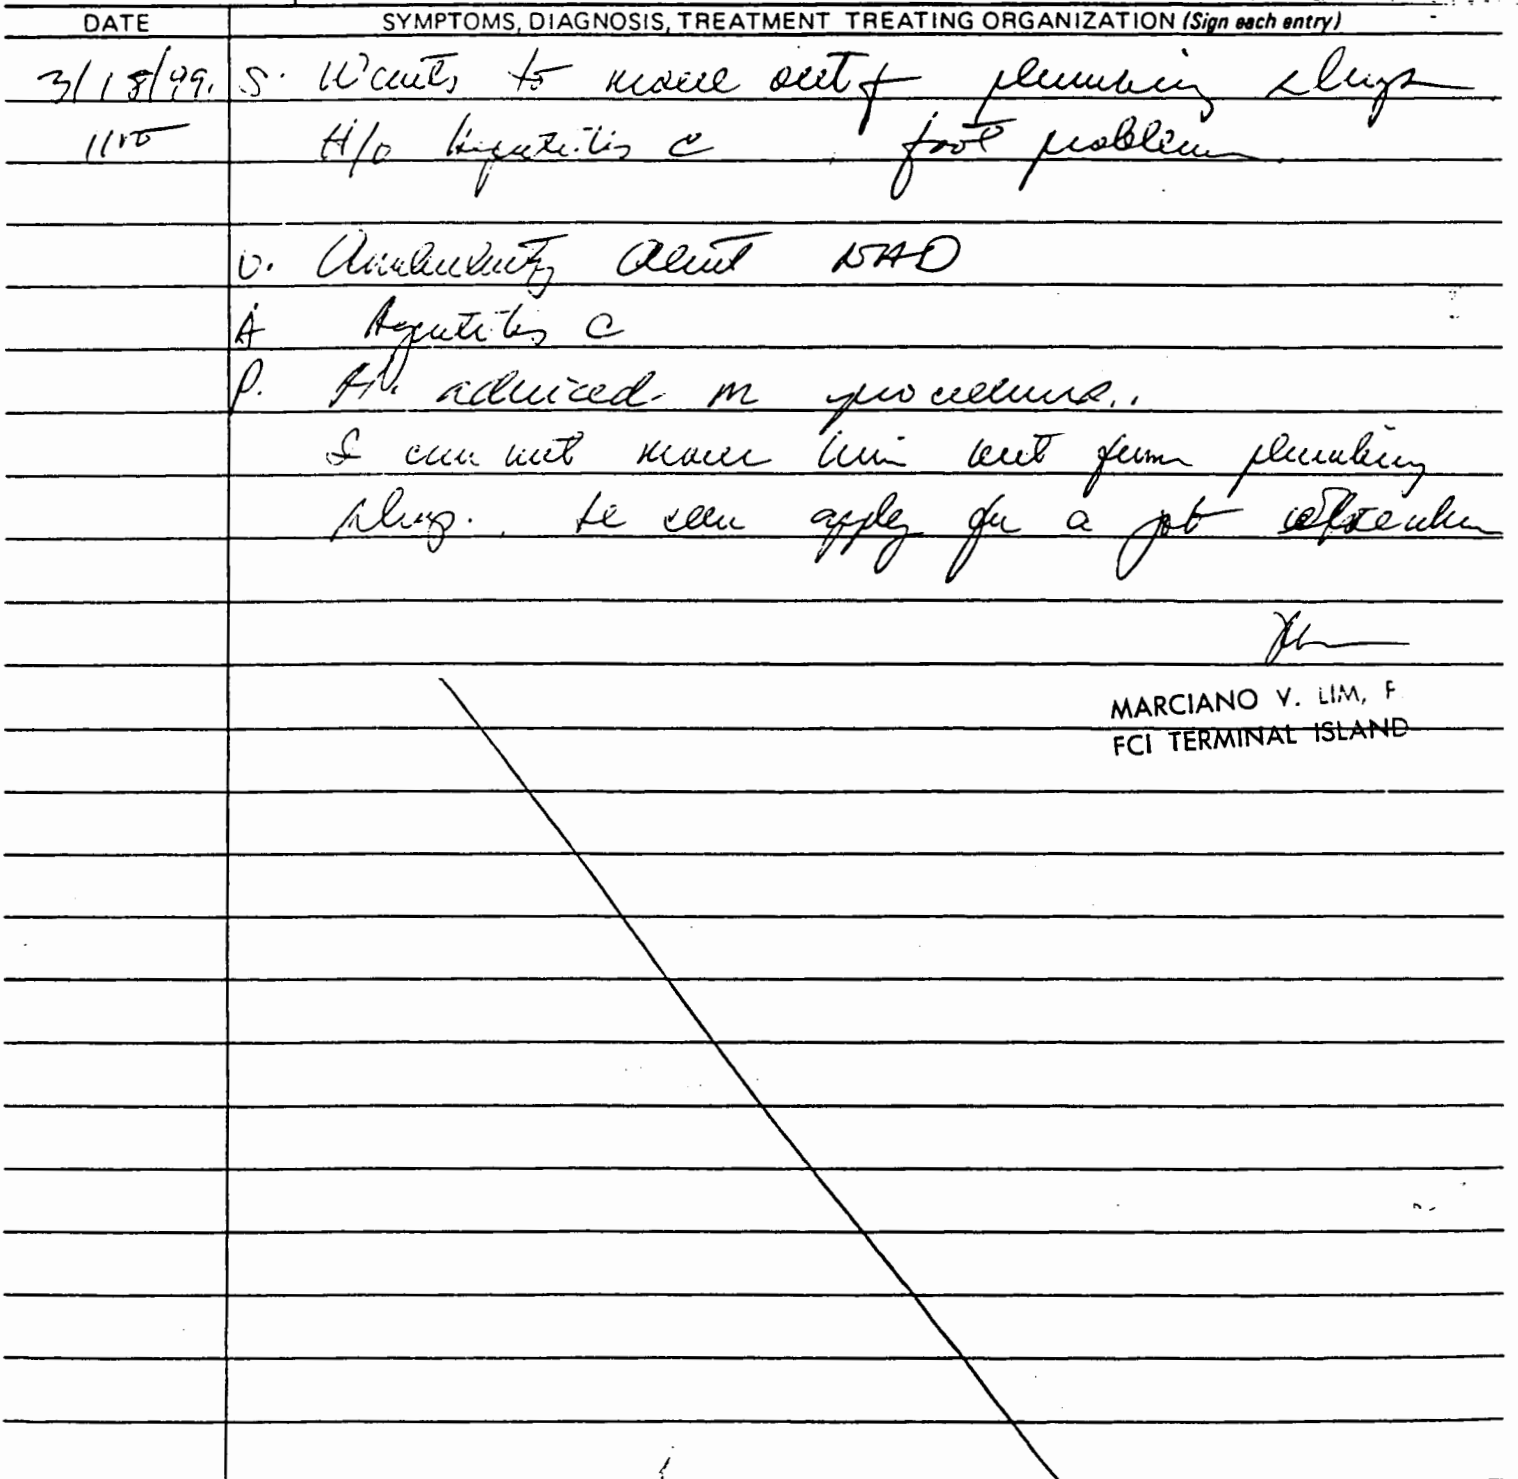 DATE SYMPTOMS, DIAGNOSIS, TREATMENT TREATING ORGANIZATION (Sign each entry)
3/18/99. S. Wants to move out of plumbing shop
H/o hepatitis C foot problem.
O. Ambulatory alert NAD
A Hepatitis C
P. advised procedures..
I can not move him out from plumbing
shop. He can apply for a job elsewhere
MARCIANO V. LIM, P
FCI TERMINAL ISLAND